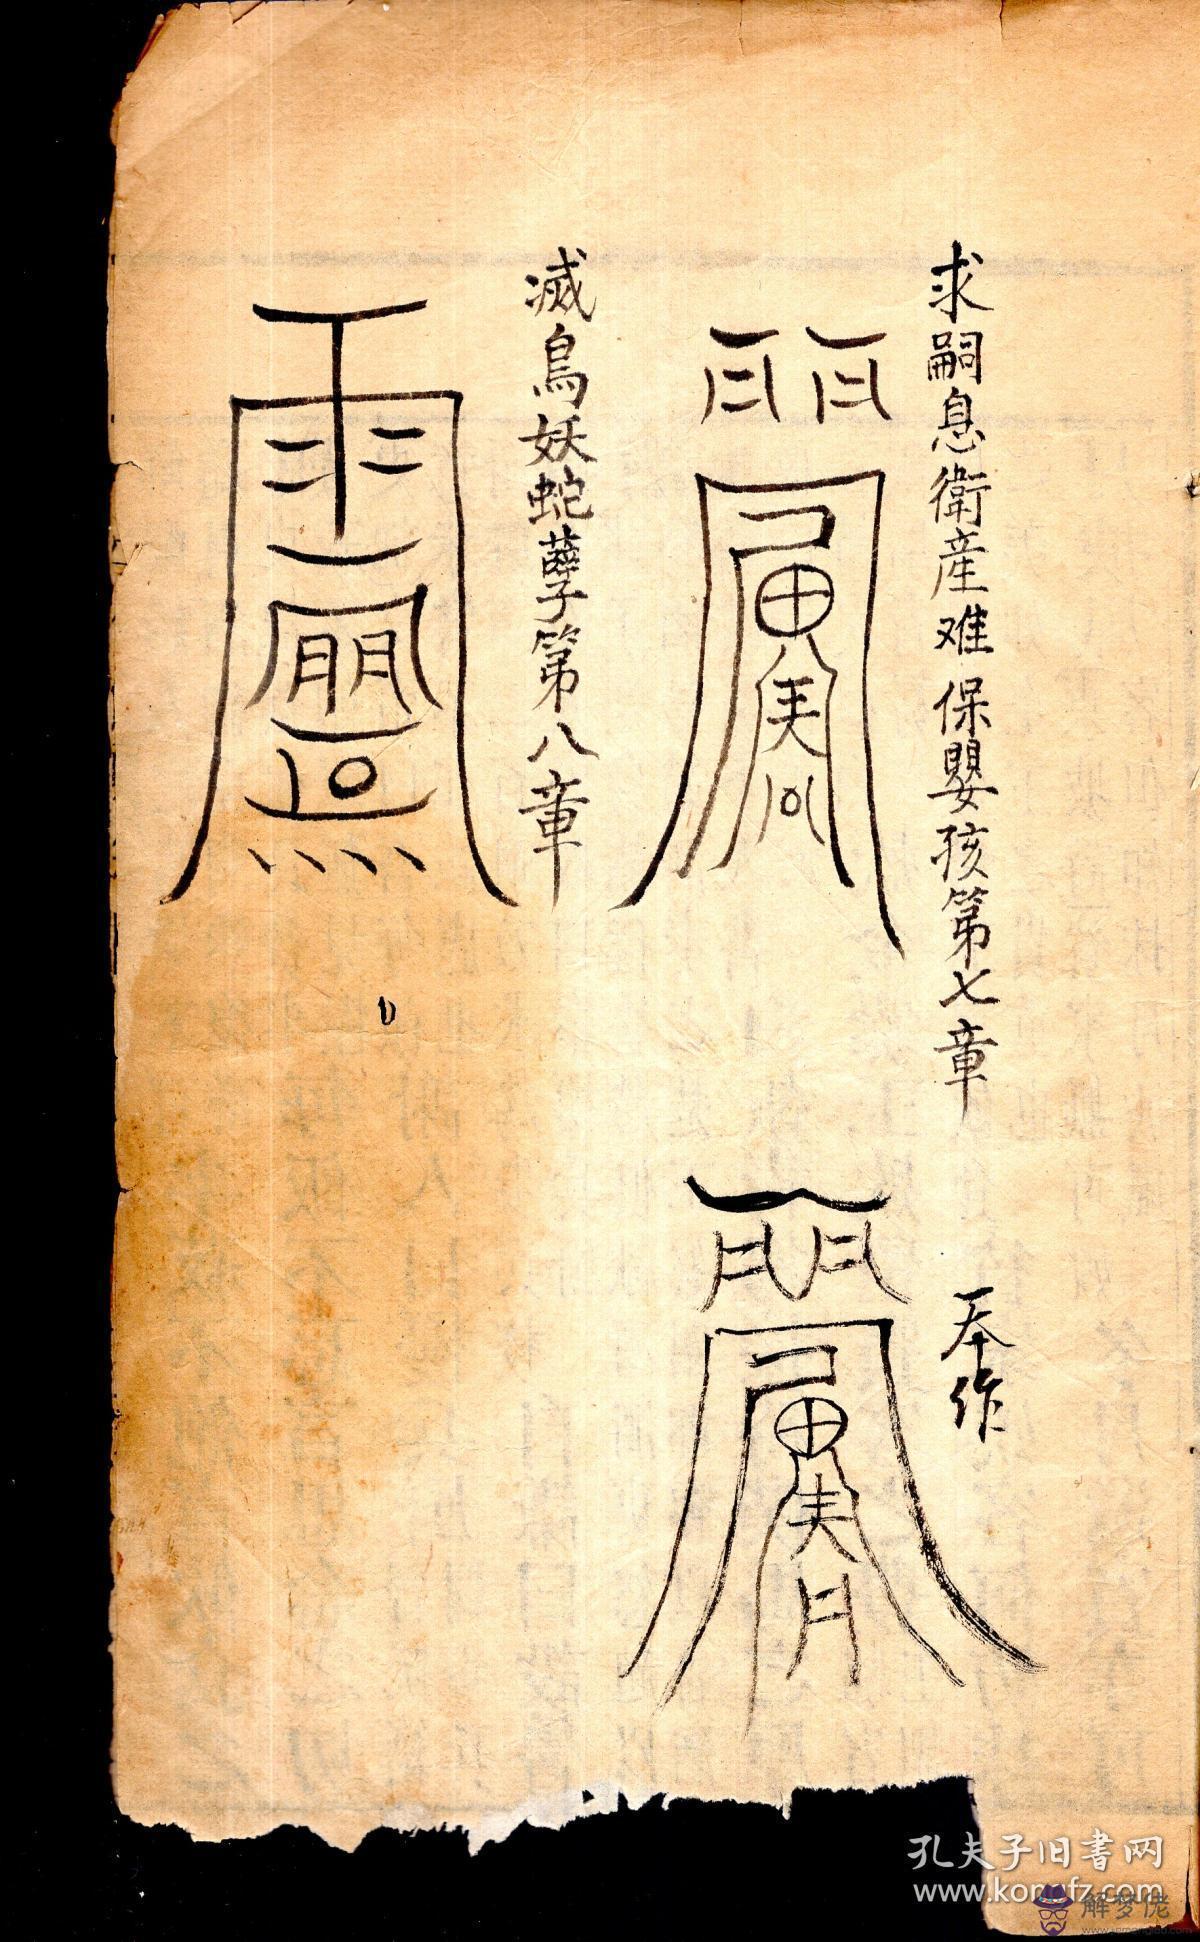 求嗣息衛産难保嬰孩第七章
一本作
滅鳥妖蛇孽第八章
孔夫子旧書网
www.kongfz.com
解梦佬